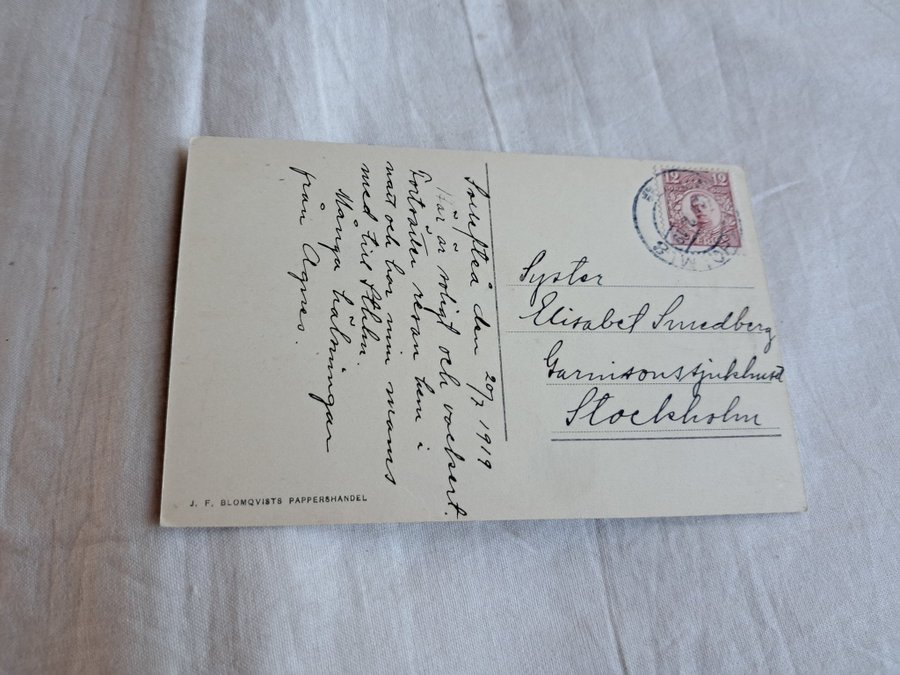 Sollefteå den 20/7 1919
Här är roligt och vackert.
Fortsätter resan hem i
natt och har min mans
med till Sthlm.
Många hälsningar
från Agnes.
12 12
Syster
Elisabet Smedberg
Garnisonssjukhuset
Stockholm
J. F. BLOMQVISTS PAPPERSHANDEL